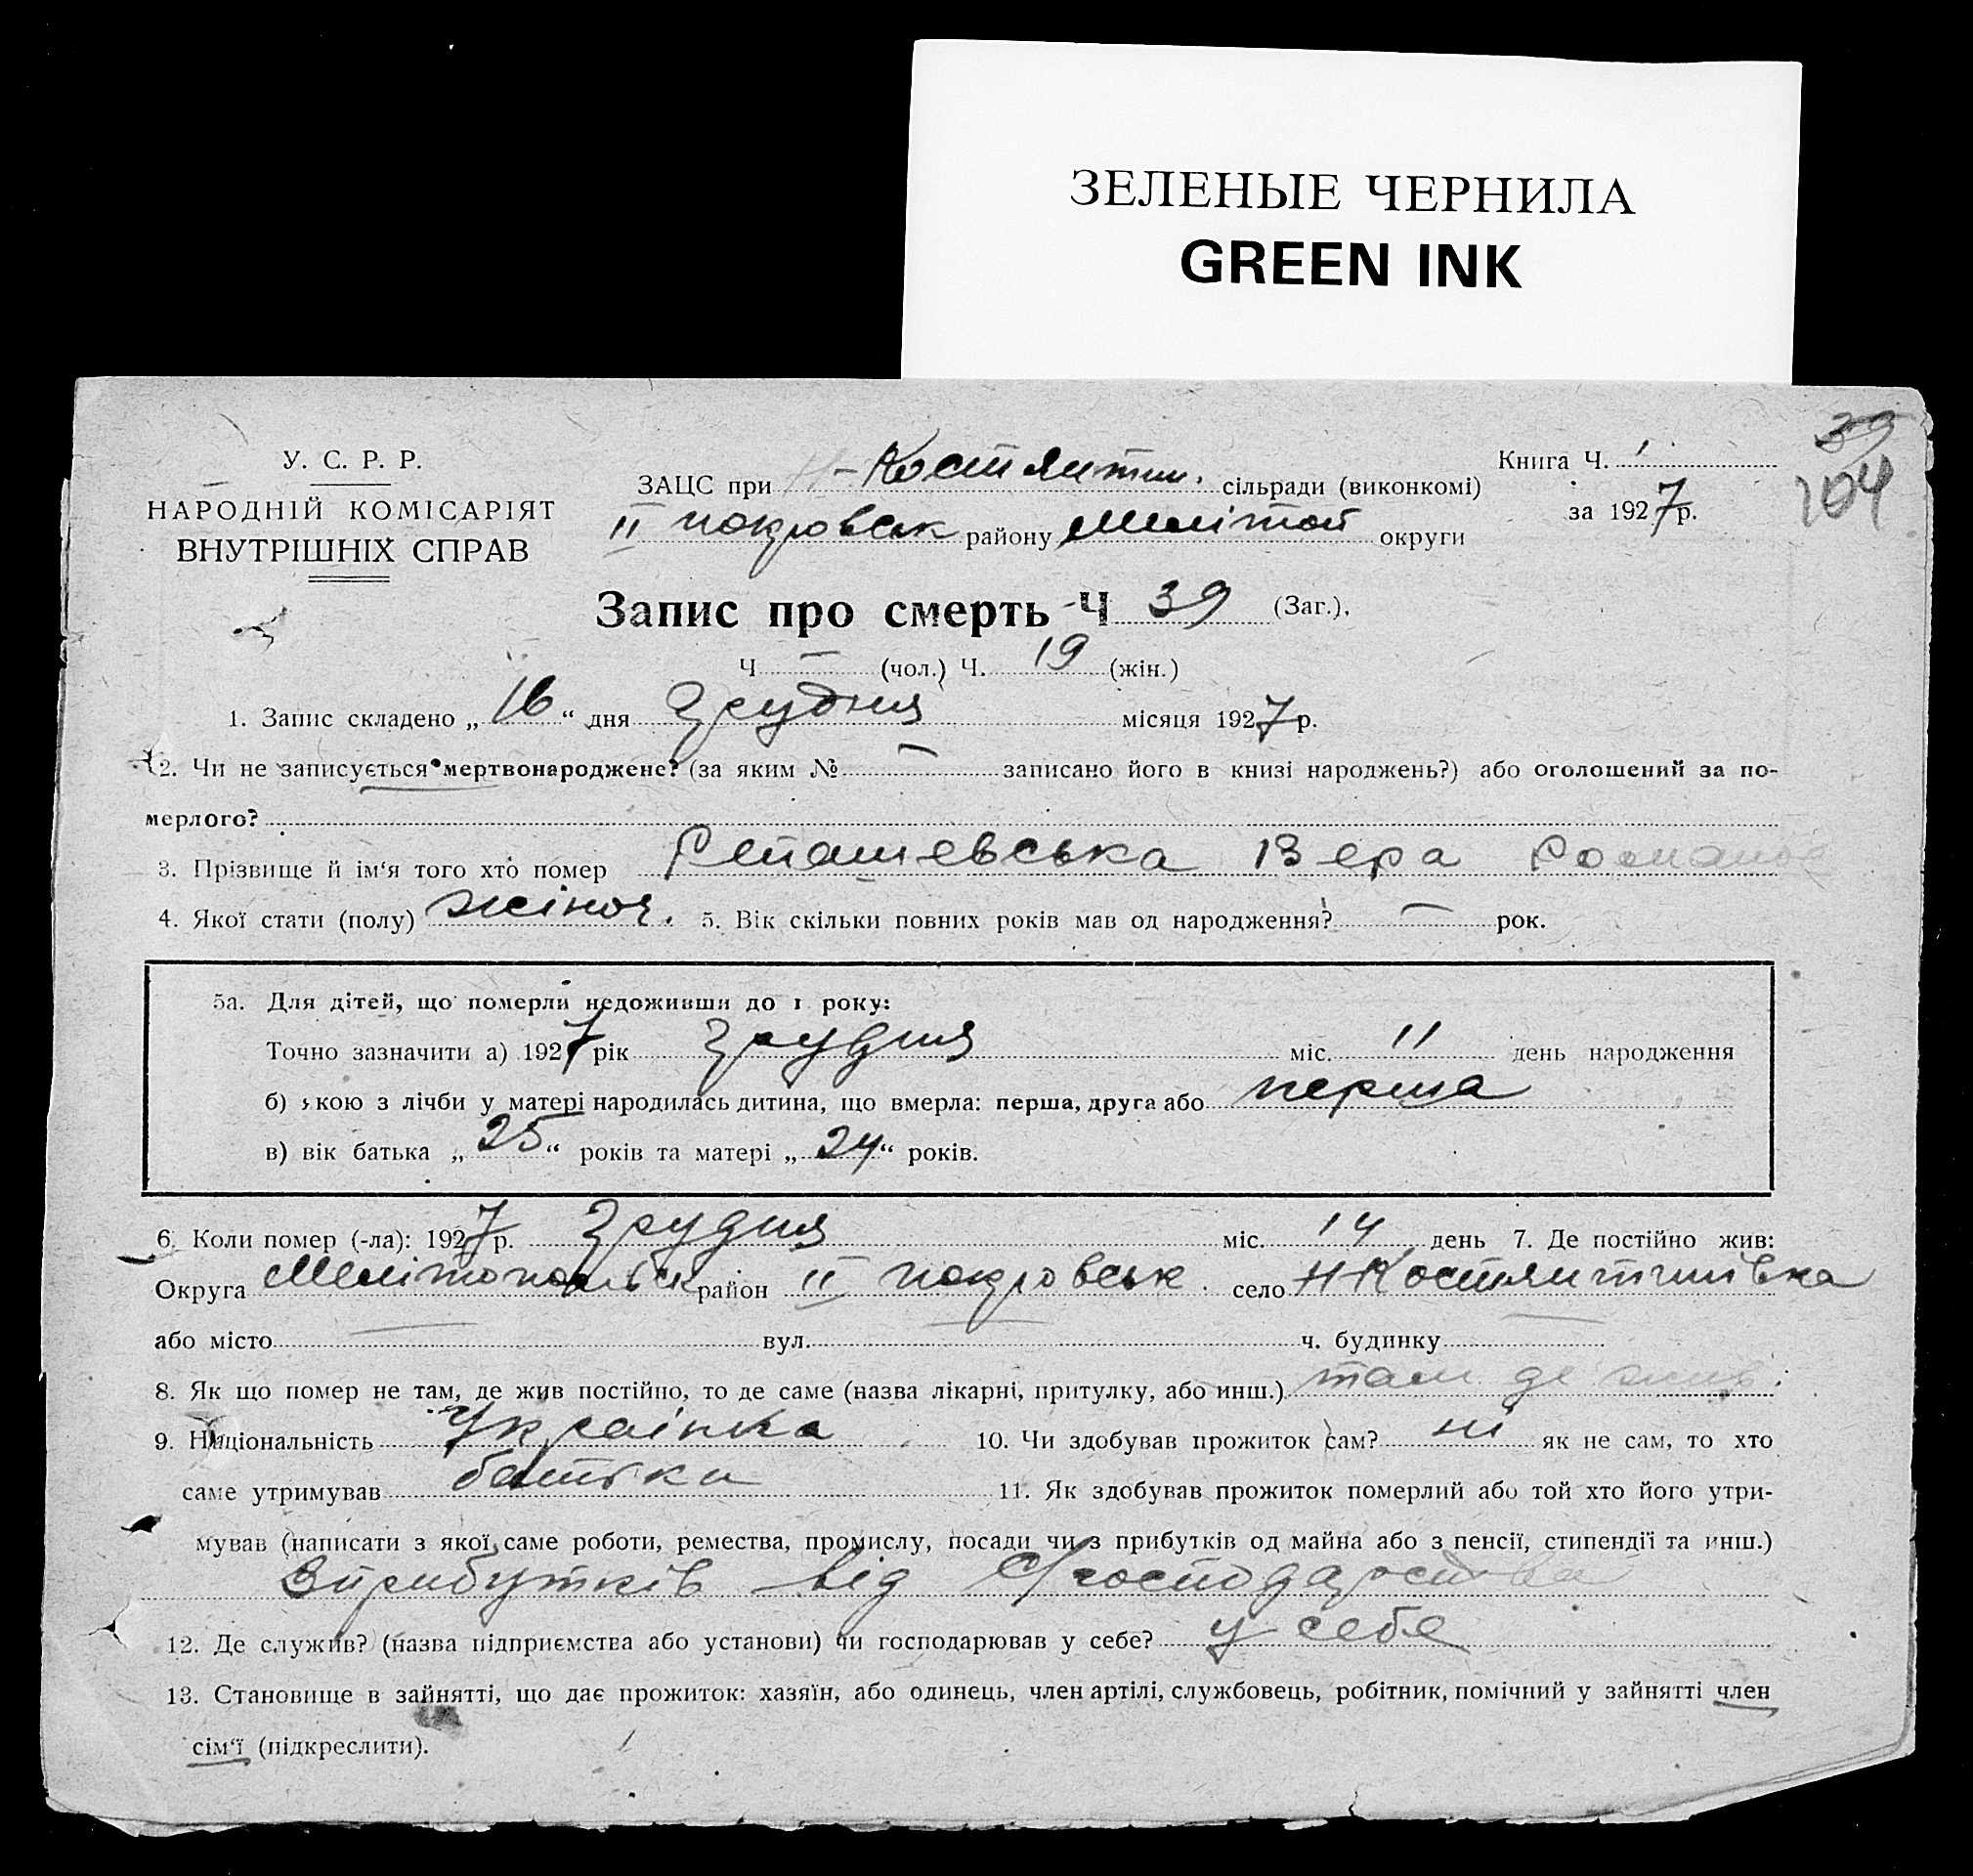 ЗЕЛЕНЫЕ ЧЕРНИЛА
GREEN INK
39
104
У. С. Р. Р.
НАРОДНІЙ КОМІСАРІЯТ
ВНУТРІШНІХ СПРАВ
ЗАЦС при Н-Костянтин. сільради (виконкомі)
II покровськ району Мелітоп округи
Книга Ч. 1
за 1927 р.
Запис про смерть Ч 39 (Заг.),
Ч — (чол.) Ч. 19 (жін.)
1. Запис складено „ 16 “ дня Грудня місяця 1927 р.
2. Чи не записується мертвонароджене? (за яким № — записано його в книзі народжень?) або оголошений за по-
мерлого?
3. Прізвище й ім‘я того хто помер Репашевська Вера
4. Якої стати (полу) жіноч. 5. Вік скільки повних років мав од народження? — рок.
5а. Для дітей, що померли недоживши до 1 року:
Точно зазначити а) 1927 рік Грудня міс. 11 день народження
б) якою з лічби у матері народилась дитина, що вмерла: перша, друга або перша
в) вік батька „ 25 “ років та матері „ 24 “ років.
6. Коли помер (-ла): 1927 р. Грудня міс. 14 день 7. Де постійно жив:
Округа Мелітопольськ район II покровськ. село Н Костянтинівка
або місто — вул. — ч. будинку —
8. Як що помер не там, де жив постійно, то де саме (назва лікарні, притулку, або инш.) там де жив.
9. Національність Українка 10. Чи здобував прожиток сам? ні як не сам, то хто
саме утримував батьки 11. Як здобував прожиток померлий або той хто його утри-
мував (написати з якої саме роботи, ремества, промислу, посади чи з прибутків од майна або з пенсії, стипендії та инш.)
Зприбутків від с/господарства
12. Де служив? (назва підприємства або установи) чи господарював у себе? у себе
13. Становище в зайнятті, що дає прожиток: хазяїн, або одинець, член артілі, службовець, робітник, помічний у зайнятті член
сім‘ї (підкреслити).